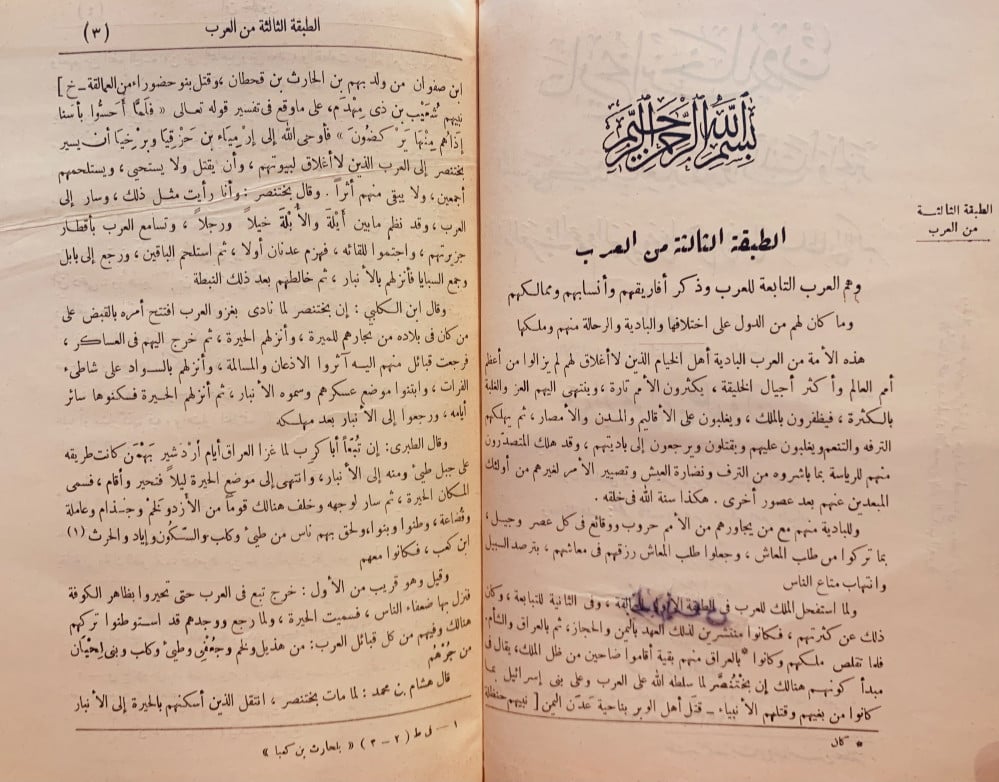 بسم الله الرحمن الرحيم
الطبقة الثالثة
من العرب
الطبقة الثالثة من العرب
وهم العرب التابعة للعرب وذكر أفاريقهم وأنسابهم وممالكهم
وما كان لهم من الدول على اختلافها والبادية والرحالة منهم وملكها
هذه الأمة من العرب البادية أهل الخيام الذين لا أغلاق لهم لم يزالوا من أعظم
أمم العالم وأكثر أجيال الخليقة ، يكثرون الأمم تارة ، وينتهى إليهم العز والغلبة
بالكثرة ، فيظفرون بالملك ، ويغلبون على الأقاليم والمدن والأمصار ، ثم يهلكهم
الترفه والتنعم ويغلبون عليهم ويقتلون ويرجعون إلى باديتهم ، وقد هلك المتصدرون
منهم للرياسة بما باشروه من الترف ونضارة العيش وتصيير الأمر لغيرهم من أولئك
المبعدين عنهم بعد عصور أخرى . هكذا سنة الله فى خلقه .
وللبادية منهم مع من يجاورهم من الأمم حروب ووقائع فى كل عصر وجيل ،
بما تركوا من طلب المعاش ، وجعلوا طلب المعاش رزقهم فى معاشهم ، بترصد السبيل
وانتهاب متاع الناس
ولما استفحل الملك للعرب فى الطبقة الأولى للعمالقة ، وفى الثانية للتبابعة ، وكان
ذلك عن كثرتهم ، فكانوا منتشرين لذلك العهد باليمن والحجاز ، ثم بالعراق والشأم .
فلما تقلص ملكهم وكانوا *بالعراق منهم بقية أقاموا ضاحين من ظل الملك، يقال فى
مبدأ كونهم هنالك إن بُخْتُنَصَّر لما سلطه الله على العرب وعلى بنى إسرائيل بما
كانوا من بغيهم وقتلهم الأنبياء ــ قتل أهل الوبر بناحية عَدَن اليمن [ نبيهم حنظلة
* كان
الطبقة الثالثة من العرب
(٣)
ابن صفوان من ولد يهم بن الحارث بن قحطان ، وقتل بنو حضوراء من العمالقة ــ خ ]
نبيهم شُعَيْب بن ذى مِهْدَم، على ما وقع فى تفسير قوله تعالى « فَلَمَّا أَحَسُّوا بأسَنَا
إذَا هُم مِنْهَا يَرْكُضُونَ » فأوحى الله إلى إرْمِيَاء بن حَزْقِيَا وبرْخِيَا أن يسير
بختنصر إلى العرب الذين لا أغلاق لبيوتهم ، وأن يقتل ولا يستحيى ، ويستلحمهم
أجمعين ، ولا يبقى منهم أثراً . وقال بختنصر : وأنا رأيت مثل ذلك ، وسار إلى
العرب ، وقد نظم مابين أَيْلَة والأُبُلَّة خيلاً ورجلاً ، وتسامع العرب بأقطار
جزيرتهم ، واجتموا للقائه ، فهزم عدنان أولا ، ثم استلحم الباقين ، ورجع إلى بابل
وجمع السبايا فأنزلهم بالأنبار ، ثم خالطهم بعد ذلك النبيطة
وقال ابن الكلبي : إن بختنصر لما نادى بغزو العرب افتتح أمره بالقبض على
من كان فى بلاده من تجارهم للميرة ، وأنزلهم الحيرة ، ثم خرج اليهم فى العساكر ،
فرجعت قبائل منهم اليه آثروا الاذعان والمسالمة ، وأنزلهم بالسواد على شاطىء
الفرات ، وابتنوا موضع عسكرهم وسموه الأنبار ، ثم أنزلهم الحيرة فسكنوها سائر
أيامه ، ورجعوا إلى الأنبار بعد مهلكه
وقال الطبرى : إن تُبَّعًا أبا كرب لما غزا العراق أيام أرْدَشير بَهْمَن كانت طريقه
على جبل طيئ ومنه إلى الأنبار ، وانتهى إلى موضع الحيرة ليلاً فتحير وأقام ، فسمى
المكان الحيرة ، ثم سار لوجهه وخلف هنالك قوماً من الأزد ولخم وجذام وعاملة
وقُضاعة ، وطنوا وبنوا، ولحق بهم ناس من طيئ وكلب والسَّكُون وإياد والحرث (١)
ابن كعب ، فكانوا معهم
وقيل وهو قريب من الأول : خرج تبع فى العرب حتى تحيروا بظاهر الكوفة
فنزل بها ضعفاء الناس ، فسميت الحيرة ، ولما رجع ووجدهم قد استوطنوا تركهم
هنالك وفيهم من كل قبائل العرب : من هذيل ولخم وجُعْفي وطيئ وكلب وبنى لِحْيَان
من جُرْهُم
قال هشام بن محمد : لما مات بختنصر ، انتقل الذين أسكنهم بالحيرة إلى الأنبار
١ ــ فى ط (٢ ــ ٣ ) « بلحارث بن كعبا »